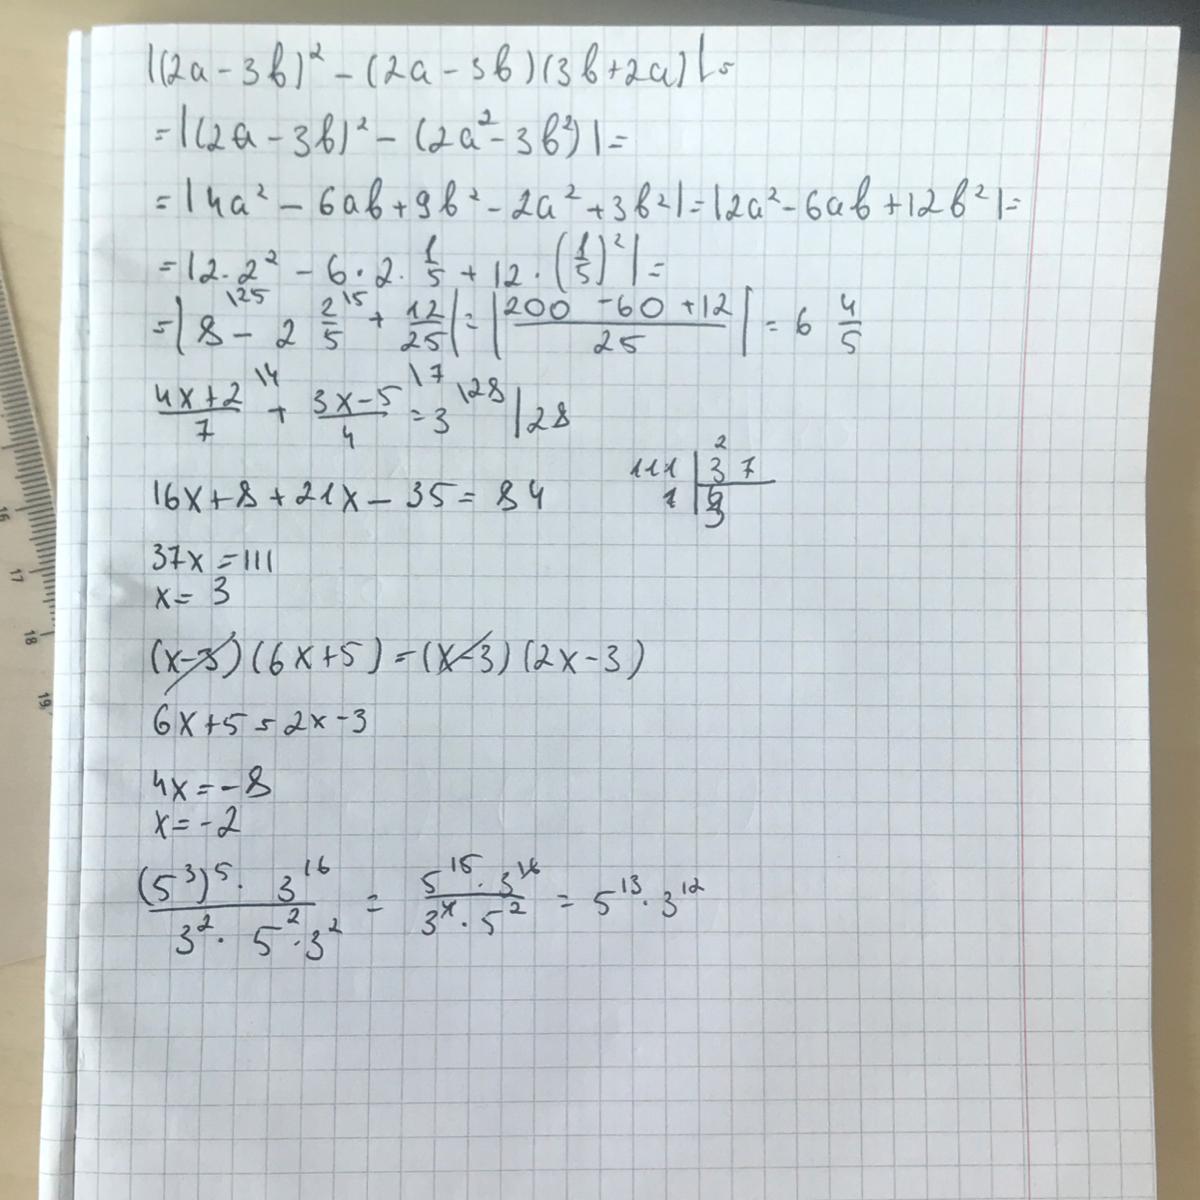 |(2a - 3b)² - (2a - 3b)(3b + 2a)| =
= |(2a - 3b)² - (2a² - 3b²)| =
= |4a² - 6ab + 9b² - 2a² + 3b²| = |2a² - 6ab + 12b²| =
= |2 · 2² - 6 · 2 · 1/5 + 12 · (1/5)²| =
= |8\25 - 2 2/5\5 + 12/25| = |(200 - 60 + 12)/25| = 6 4/5
(4x+2)/7 \4 + (3x-5)/4 \7 = 3 \28 | 28
16x + 8 + 21x - 35 = 84
111 | 37
37x = 111
x = 3
(x-3)(6x+5) = (x-3)(2x-3)
6x + 5 = 2x - 3
4x = -8
x = -2
((5³)⁵ · 3¹⁶)/(3² · 5² · 3²) = (5¹⁵ · 3¹⁶)/(3⁴ · 5²) = 5¹³ · 3¹²
15
17
18
19